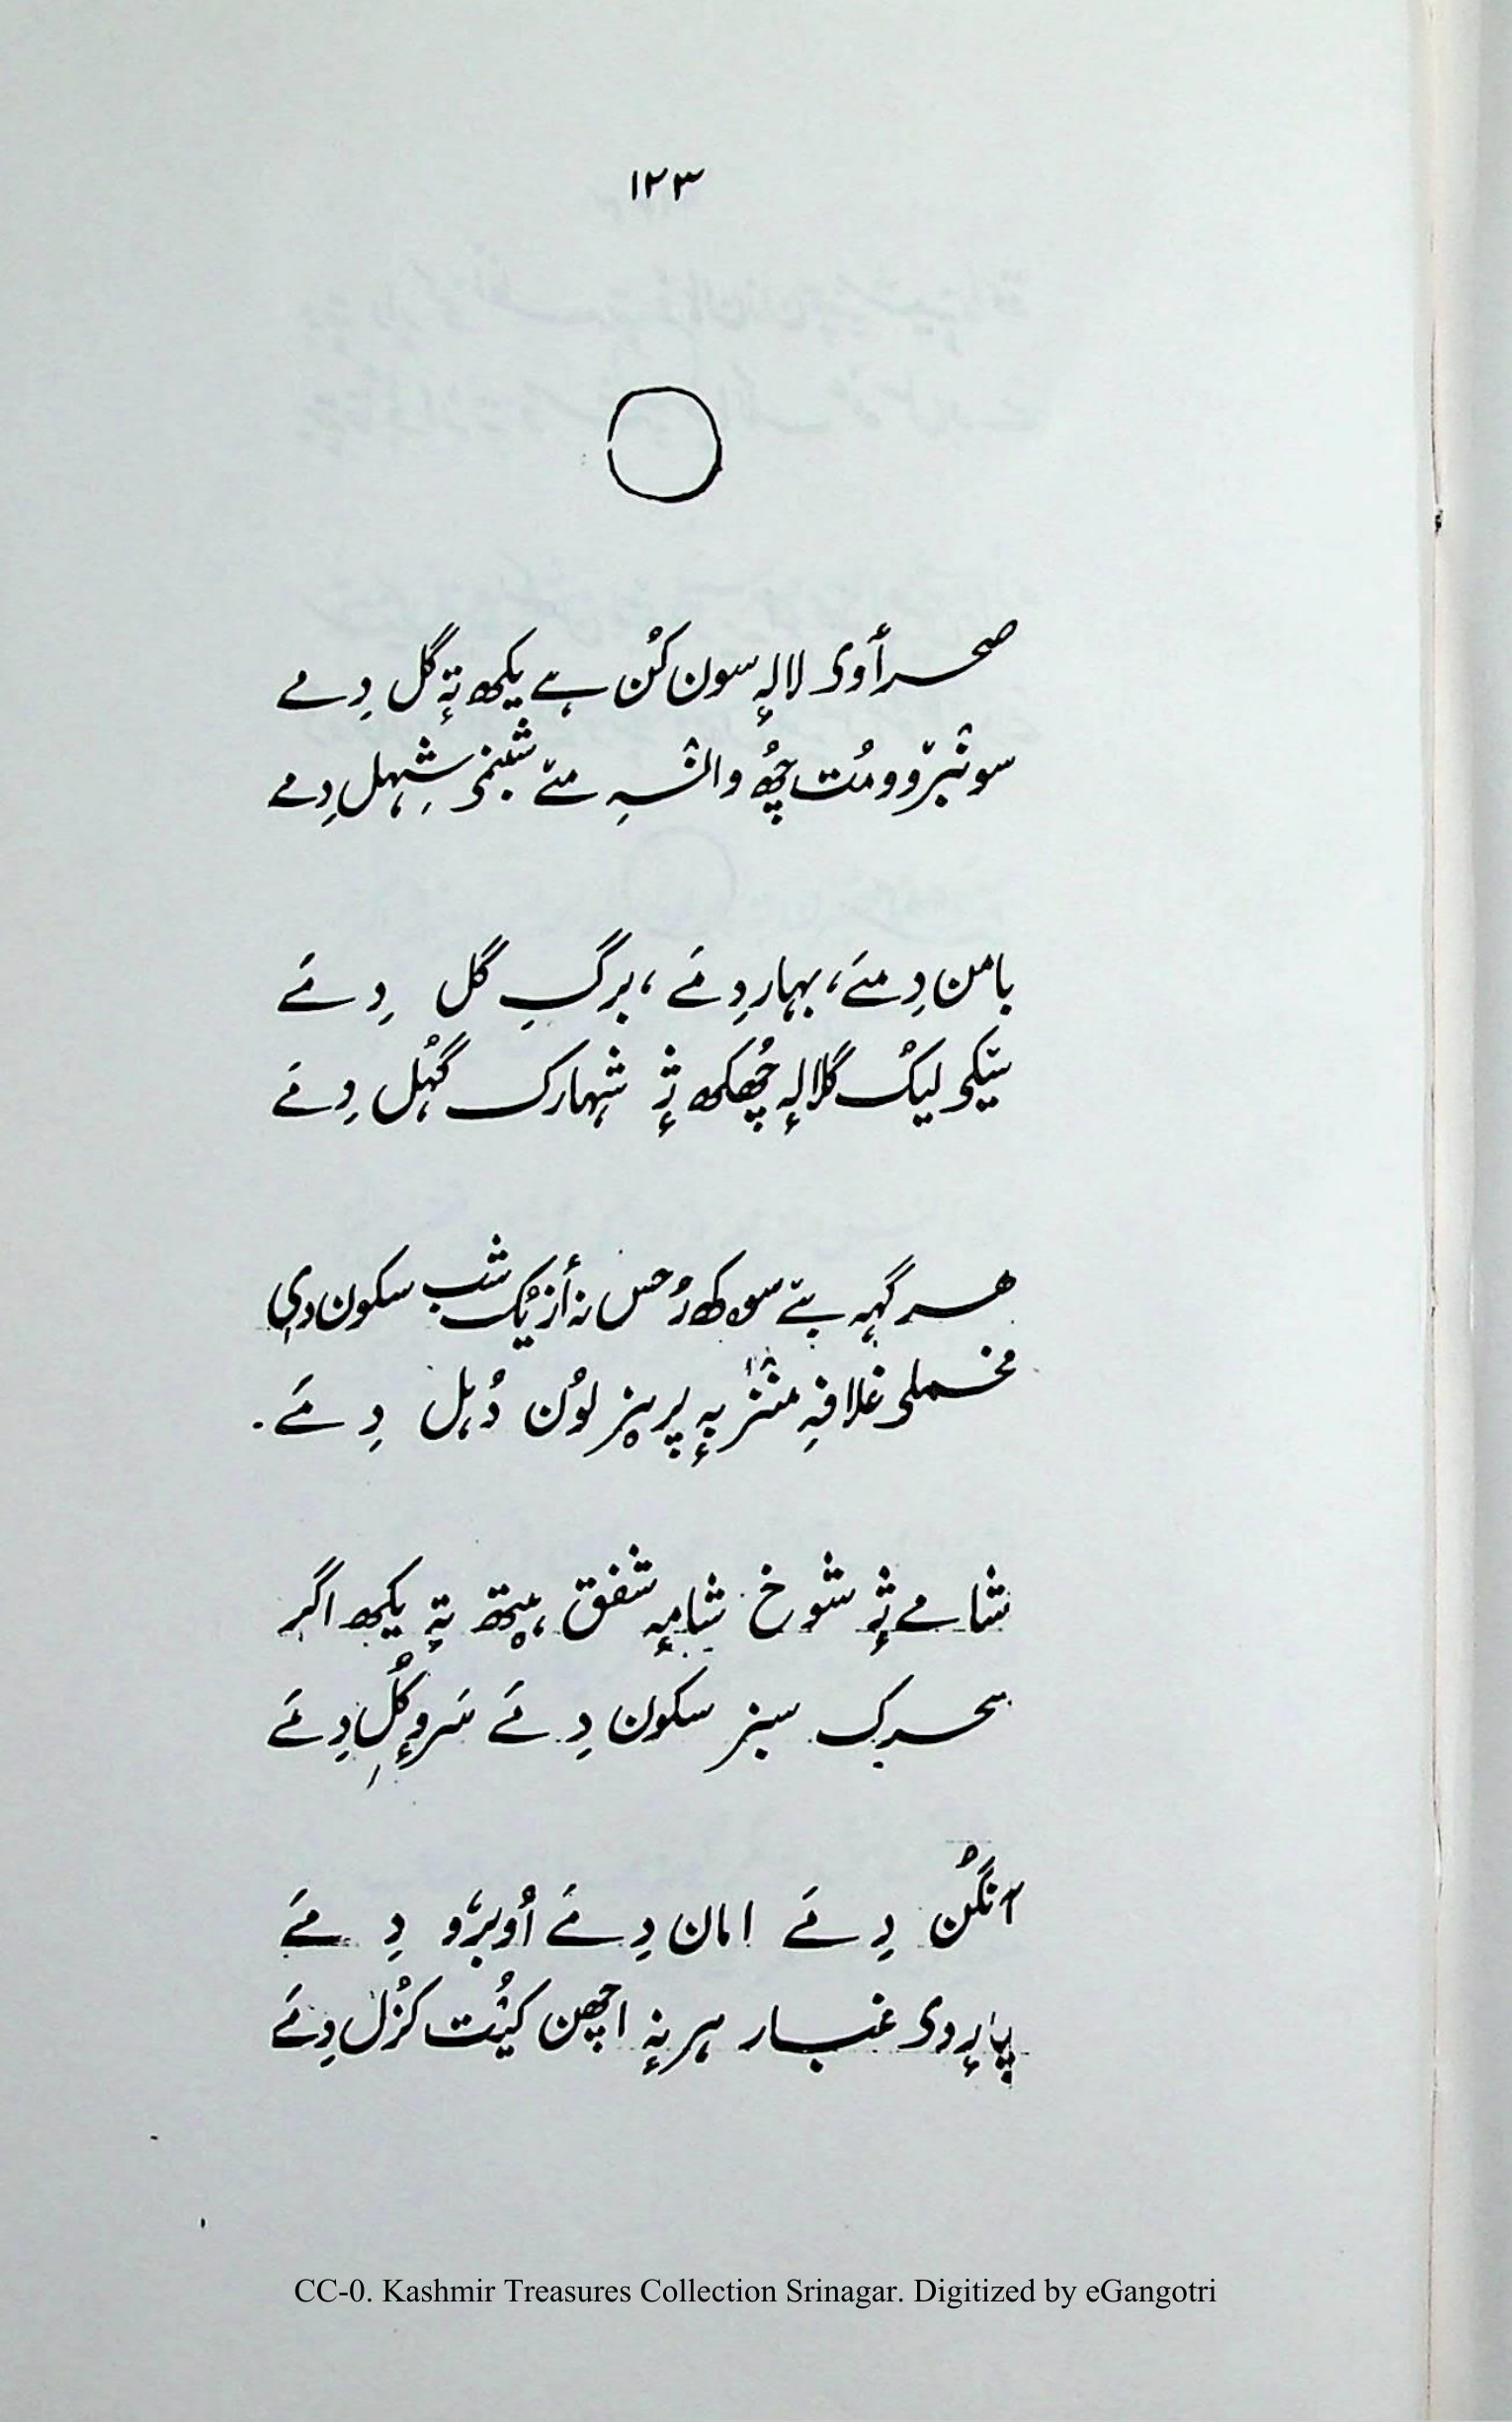 ۱۲۳
صحرأوی لالہٕ سون کُن ہے یکھ تہٕ گل دِمے
سونبرٚوومُت چُھ والشہِ متے شبنمی شہل دِمے
بامن دِمےَ، بہار دِمےَ، برگِ گل دِمےَ
سیٚکی لیکُ گلالہٕ چُھکھ ژٕ شہارک گہُل دِمےَ
ہرگہہ بنے سوکھ رُحس نہ أزیُک شب سکون دی
مخملی غلافہِ منٛز بہٕ پرنز لوُن دُہل دِمےَ۔
شامے ژٕ شوخ شامہٕ شفق، ہیتھ تہٕ یکھ اگر
سحرک سبز سکون دِمےَ سَروِ کُلِ دِمےَ
آنگُن دِمےَ امان دِمےَ اُوبرَو دِمےَ
پأردی غبار ہرنہٕ اچھن کیُت کزُل دِمےَ
CC-0. Kashmir Treasures Collection Srinagar. Digitized by eGangotri